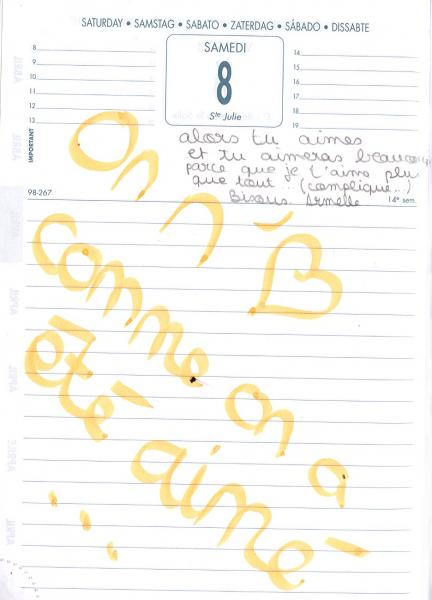 SATURDAY • SAMSTAG • SABATO • ZATERDAG • SÁBADO • DISSABTE
SAMEDI
8
Ste Julie
8
9
10
11
12
13
14
15
16
17
18
19
IMPORTANT
98-267
14e sem.
alors tu aimes
et tu aimeras beaucoup
parce que je t'aime plu
que tout ... (complique...)
Bisous Armelle
On n'
comme on a
été aimé
...